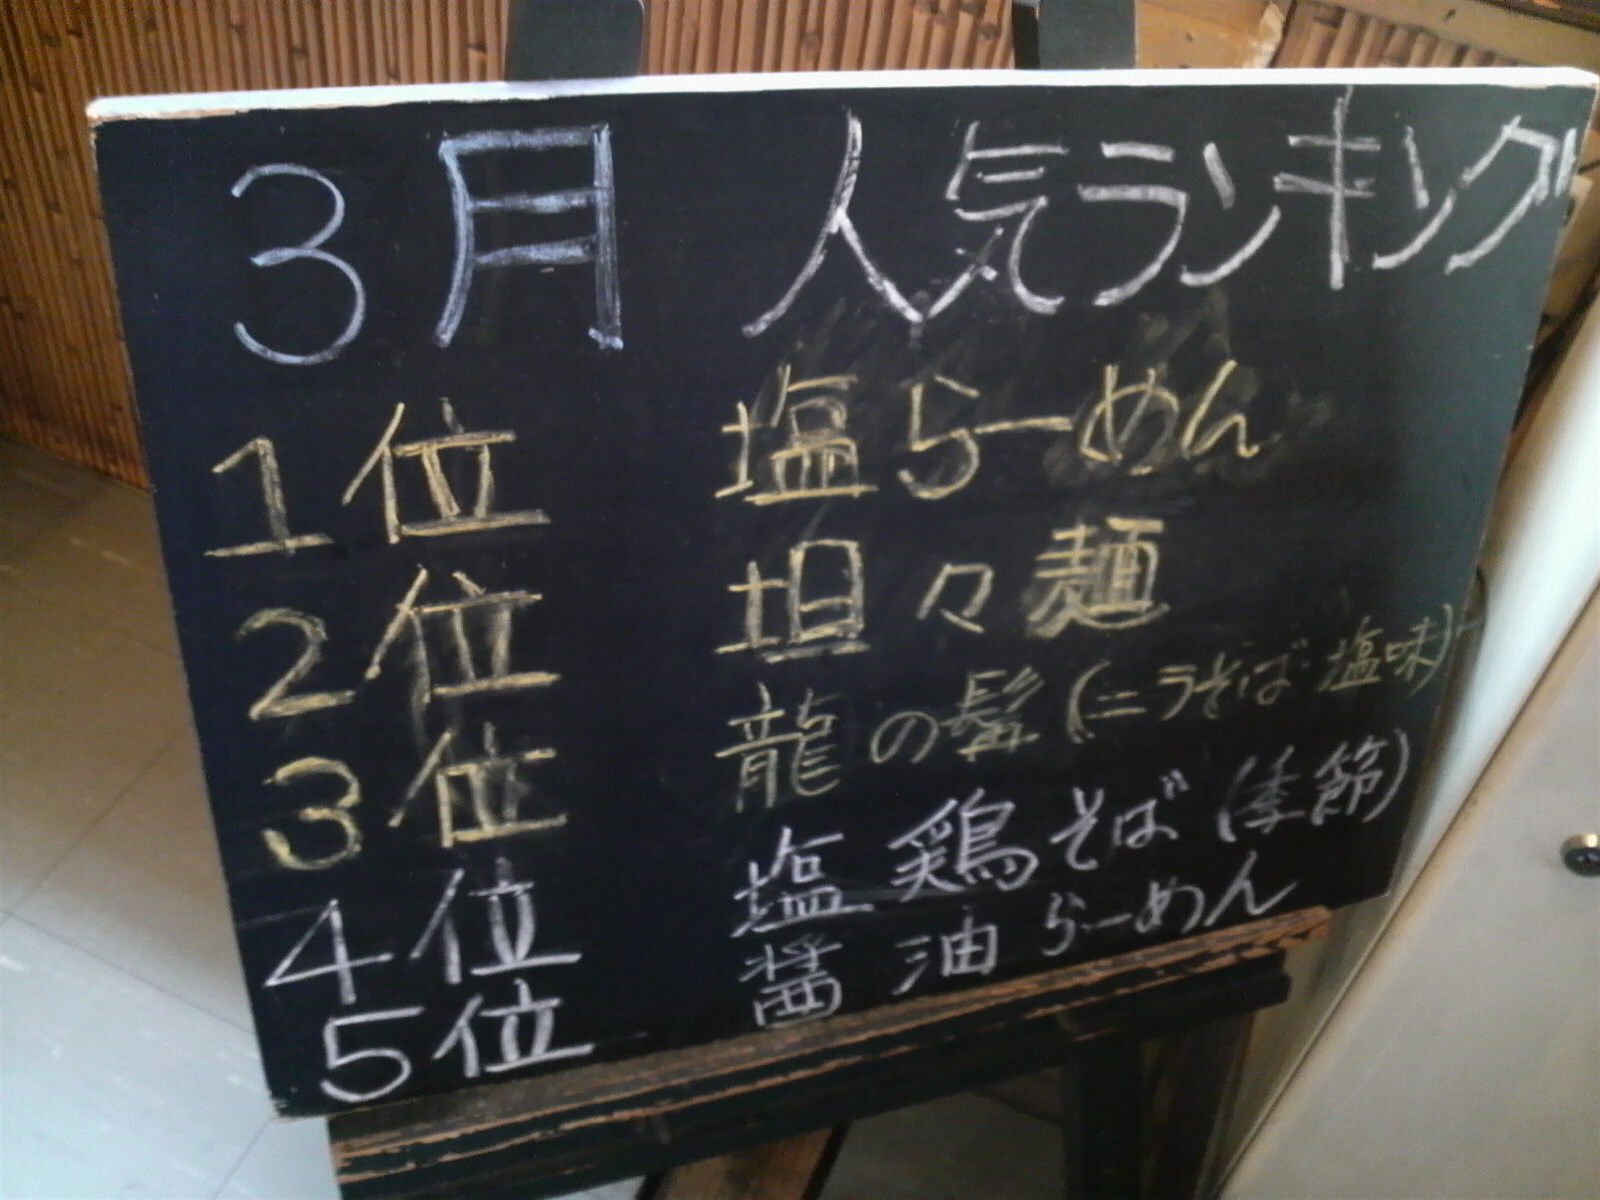 3月 人気ランキング
1位 塩らーめん
2位 坦々麺
3位 龍の髯(ニラそば 塩味)
4位 塩鶏そば(季節)
5位 醤油らーめん